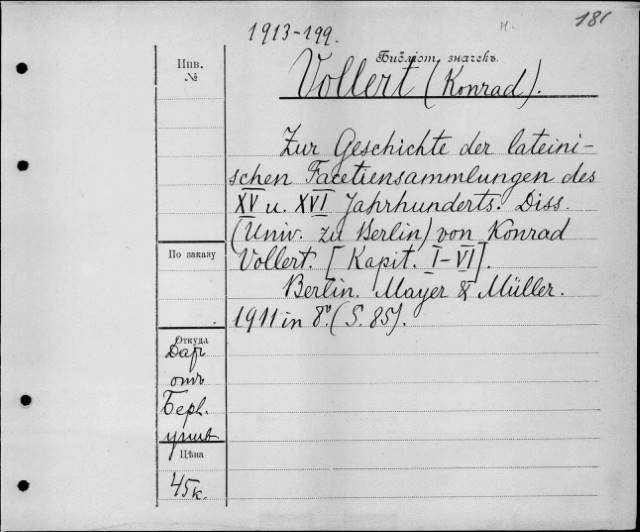 1913-199.
М. 181
Инв. №
Библіот. значекъ.
Vollert (Konrad).
Zur Geschichte der lateini-
schen Facetiensammlungen des
XV u. XVI Jahrhunderts. Diss.
(Univ. zu Berlin) von Konrad
Vollert. [Kapit. I-VI].
Berlin. Mayer & Müller.
1911 in 8º. (S. 85).
По заказу
Откуда
Дар
отъ
Берл.
унив
Цѣна
45к.